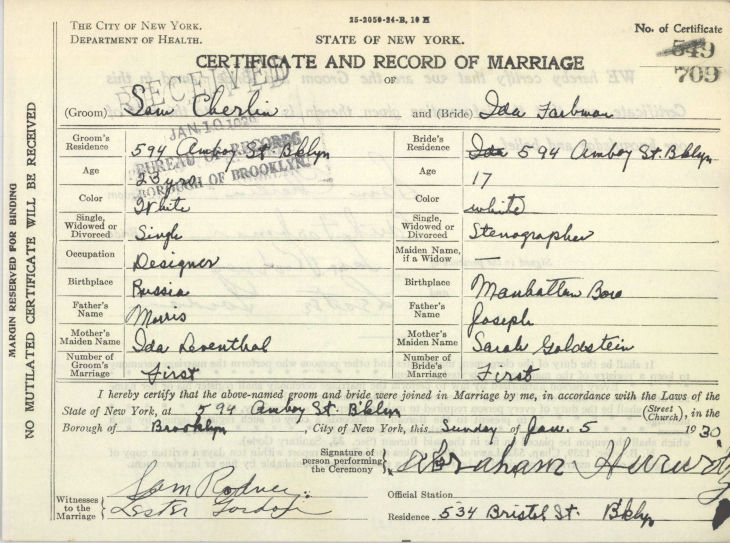 25-2050-24-B, 10 M
THE CITY OF NEW YORK.
DEPARTMENT OF HEALTH.
STATE OF NEW YORK.
No. of Certificate
549
709
CERTIFICATE AND RECORD OF MARRIAGE
OF
RECEIVED
JAN 10 1930
BUREAU OF RECORDS
BOROUGH OF BROOKLYN.
(Groom) Sam Cherlin and (Bride) Ida Farbman
Groom's Residence 594 Amboy St. Bklyn Bride's Residence Ida 594 Amboy St. Bklyn
Age 23 yrs Age 17
Color White Color white
Single, Widowed or Divorced Single Single, Widowed or Divorced Stenographer
Occupation Designer Maiden Name, if a Widow —
Birthplace Russia Birthplace Manhattan Boro
Father's Name Morris Father's Name Joseph
Mother's Maiden Name Ida Leventhal Mother's Maiden Name Sarah Goldstein
Number of Groom's Marriage First Number of Bride's Marriage First
I hereby certify that the above-named groom and bride were joined in Marriage by me, in accordance with the Laws of the
State of New York, at 594 Amboy St. Bklyn (Street Church), in the
Borough of Brooklyn, City of New York, this Sunday of Jan. 5 1930
Signature of person performing the Ceremony Abraham Hurwitz
Witnesses to the Marriage Sam
Lester Gordon
Official Station
Residence 534 Bristol St. Bklyn
MARGIN RESERVED FOR BINDING
NO MUTILATED CERTIFICATE WILL BE RECEIVED